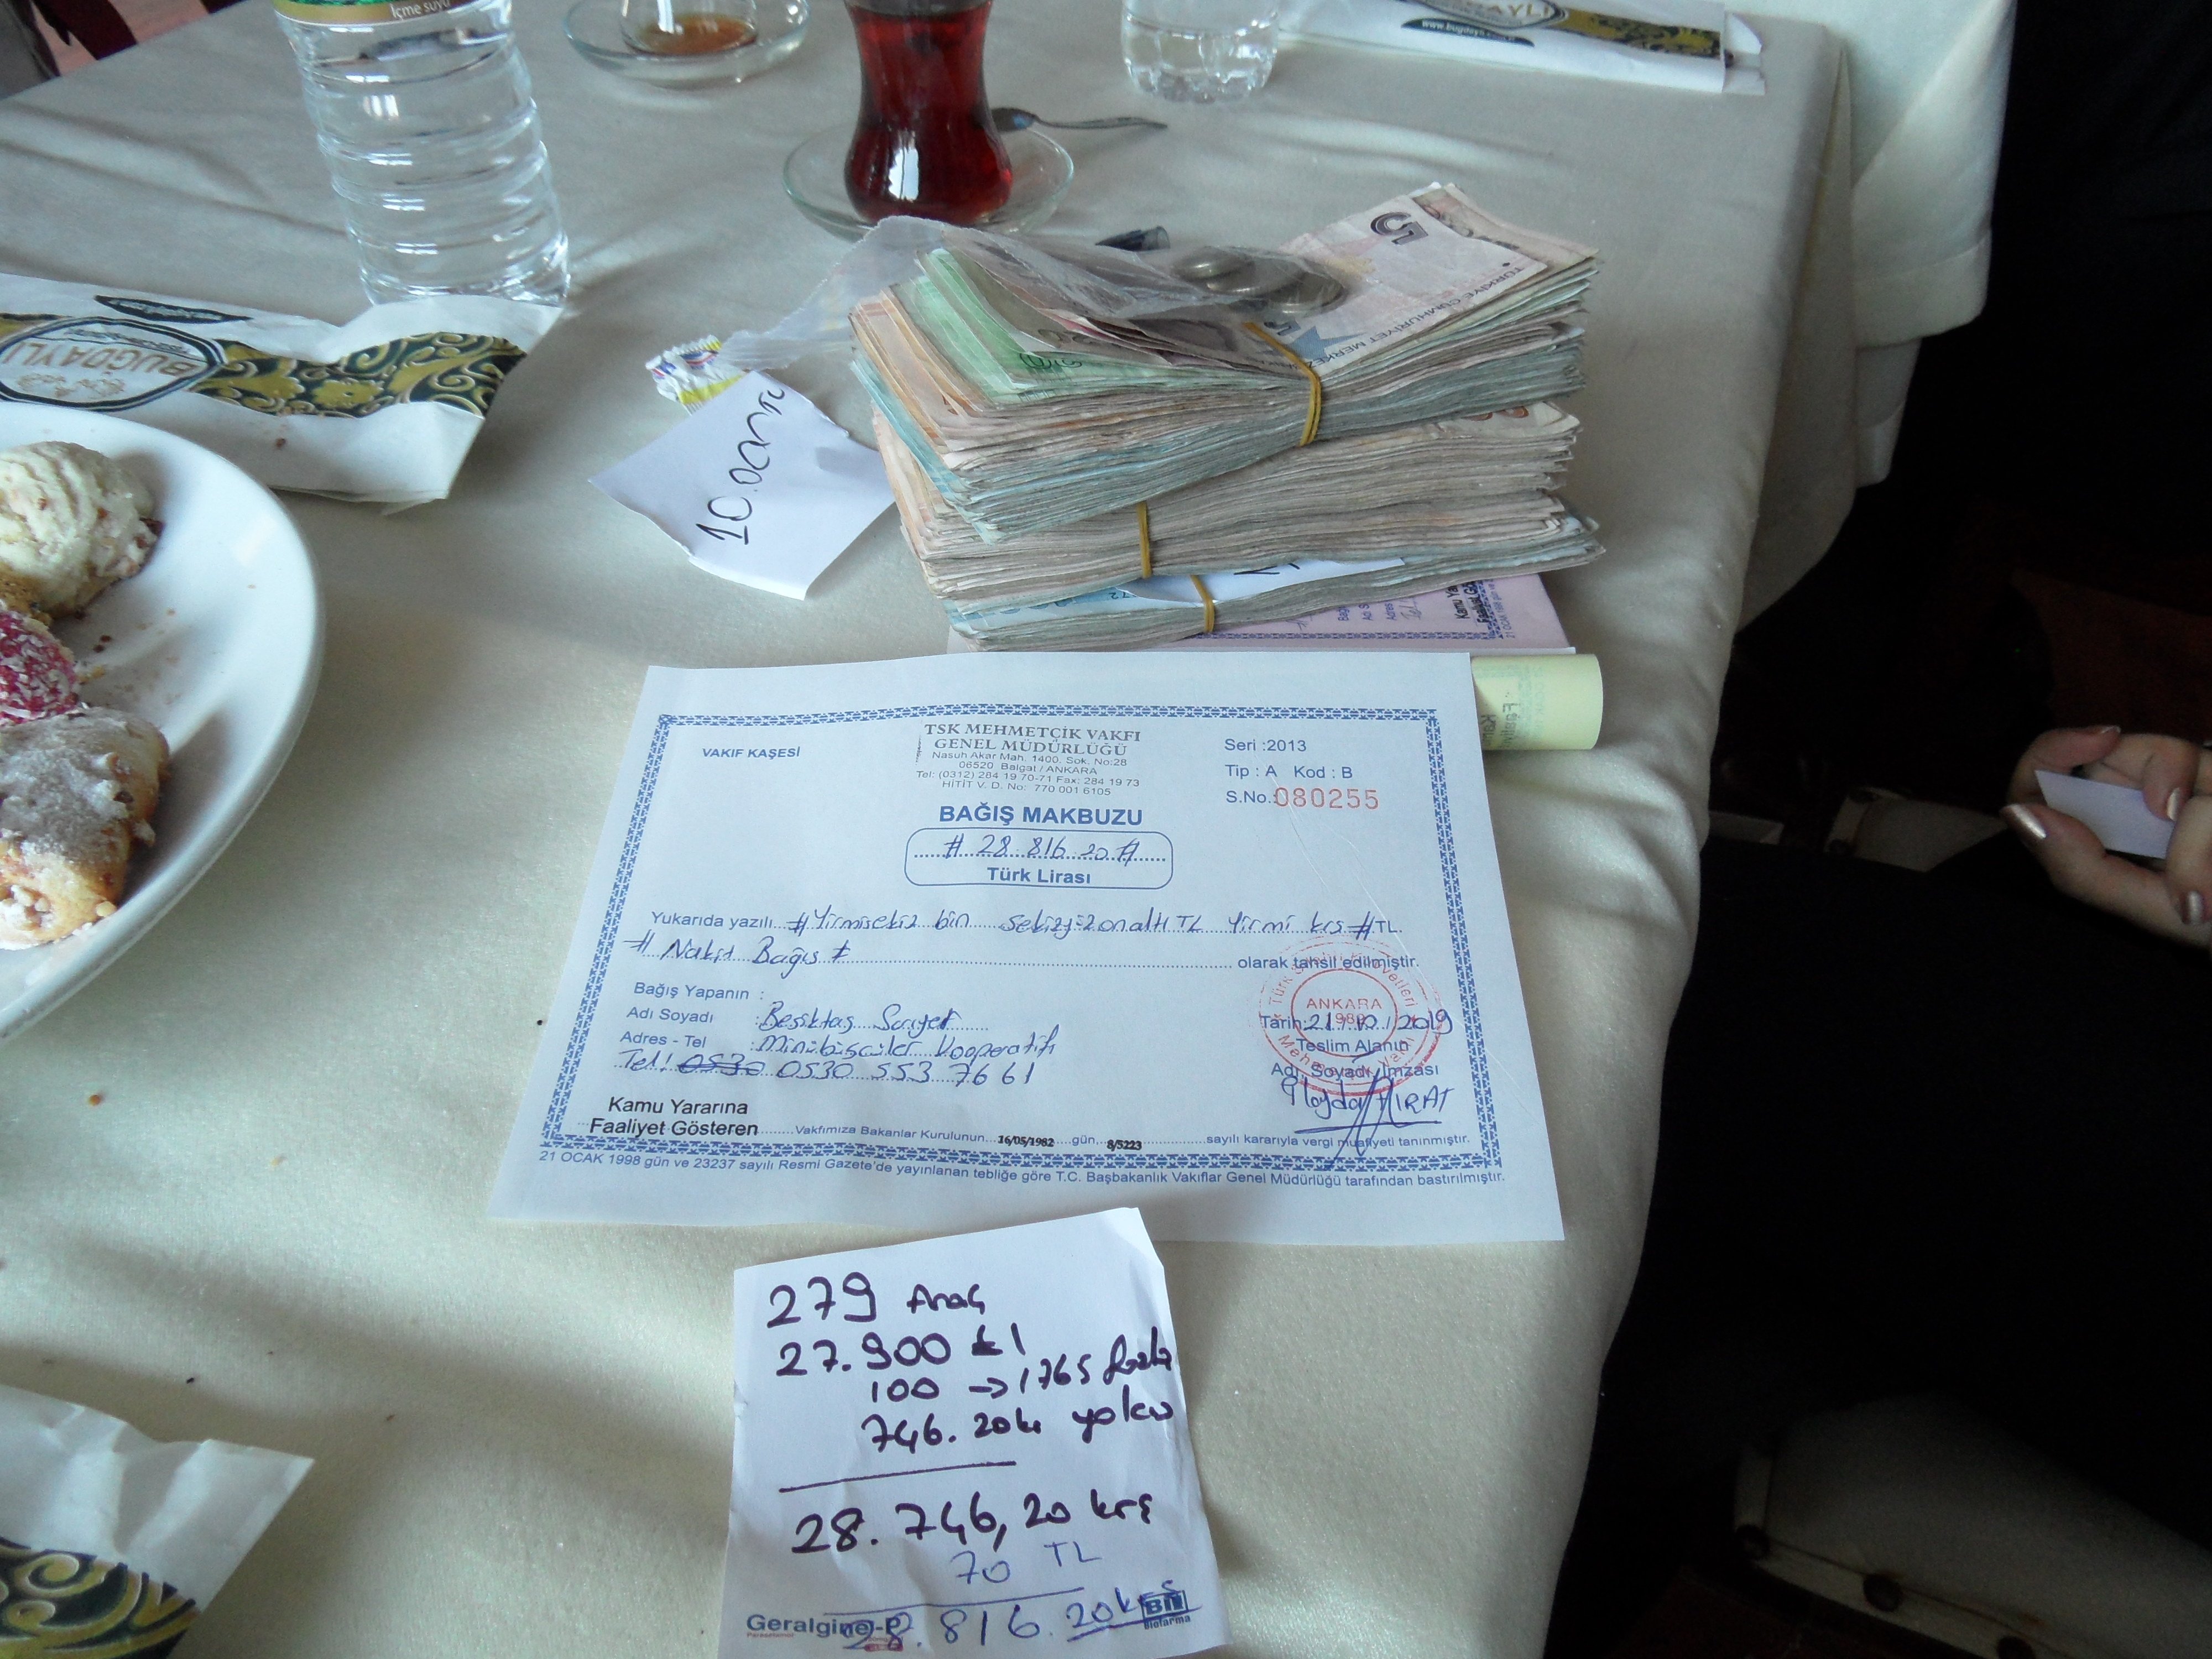 İçme suyu
BUĞDAYLI
10.000
5
TÜRKİYE CUMHURİYET MERKEZ
VAKIF KAŞESİ
TSK MEHMETÇİK VAKFI
GENEL MÜDÜRLÜĞÜ
Nasuh Akar Mah. 1400. Sok. No:28
06520 Balgat / ANKARA
Tel: (0312) 284 19 70-71 Fax: 284 19 73
HİTİT V. D. No: 770 001 6105
Seri :2013
Tip : A Kod : B
S.No.:080255
BAĞIŞ MAKBUZU
# 28.816.20 #
Türk Lirası
Yukarıda yazılı # Yirmisekiz bin sekizyüzonaltı TL yirmi krş # TL.
# Nakit Bağış # olarak tahsil edilmiştir.
Bağış Yapanın :
Adı Soyadı : Beşiktaş Sarıyer
Adres - Tel : Minibüscüler Kooperatifi
Tel: 0530 0530 553 76 61
ANKARA
Tarih: 21/10/2019
Teslim Alanın
Adı, Soyadı, İmzası
Kamu Yararına
Faaliyet Gösteren Vakfımıza Bakanlar Kurulunun 16/05/1982 gün, 8/5223 sayılı kararıyla vergi muafiyeti tanınmıştır.
21 OCAK 1998 gün ve 23237 sayılı Resmi Gazete'de yayınlanan tebliğe göre T.C. Başbakanlık Vakıflar Genel Müdürlüğü tarafından bastırılmıştır.
279 Araç
27.900 tl
100 → 1765 fazla
746.20 kr yolcu
28.746,20 krş
70 TL
28.816.20 krş
Geralgine-P
Biofarma